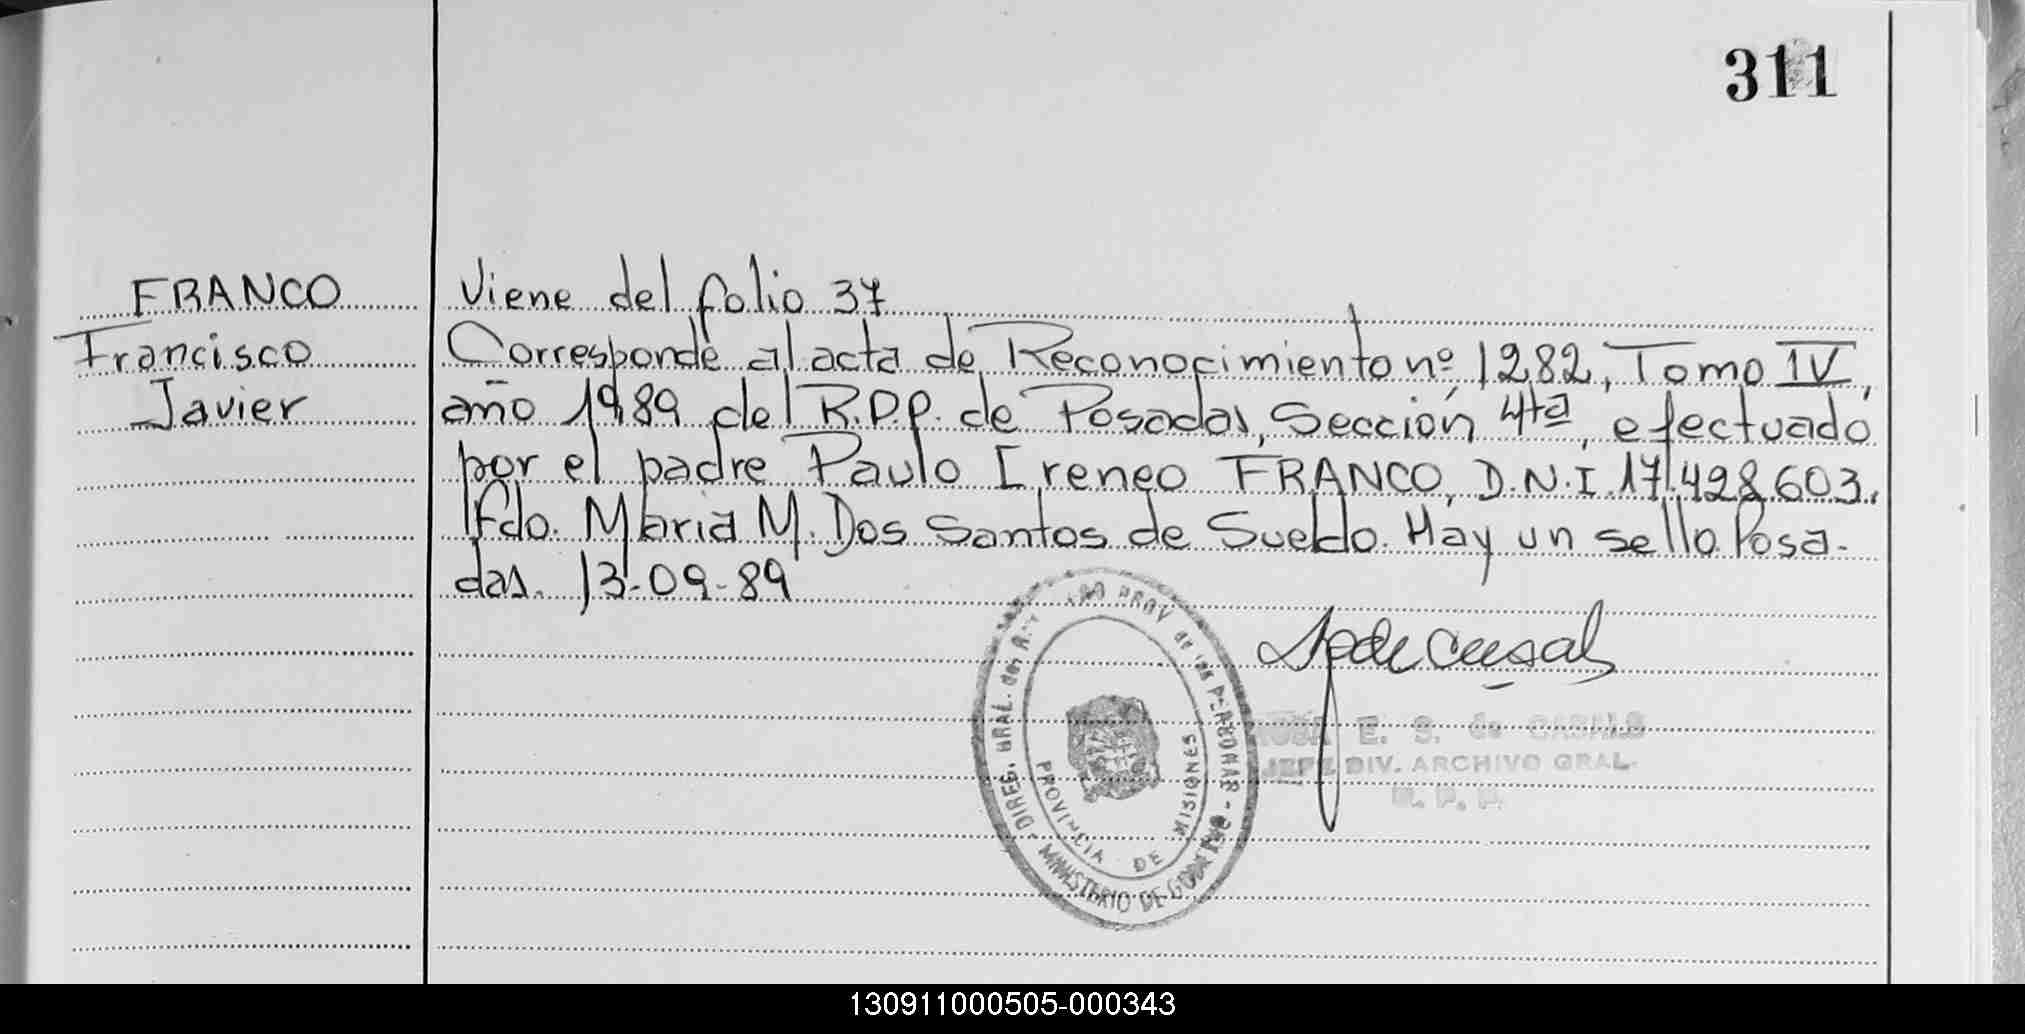 311
FRANCO
Francisco
Javier
Viene del folio 37
Corresponde al acta de Reconocimiento nº 1282, Tomo IV,
año 1989 del R.P.P. de Posadas, Sección 4ta, efectuado
por el padre Paulo Ireneo FRANCO, D.N.I. 17.428.603.
Fdo. Maria M. Dos Santos de Sueldo. Hay un sello. Posa-
das. 13-09-89
DIREG. GRAL. del PROV de las PERSONAS
MINISTERIO DE GOBIERNO
PROVINCIA DE MISIONES
E. S. de CASALS
JEFE DIV. ARCHIVO GRAL.
R. P. P.
130911000505-000343